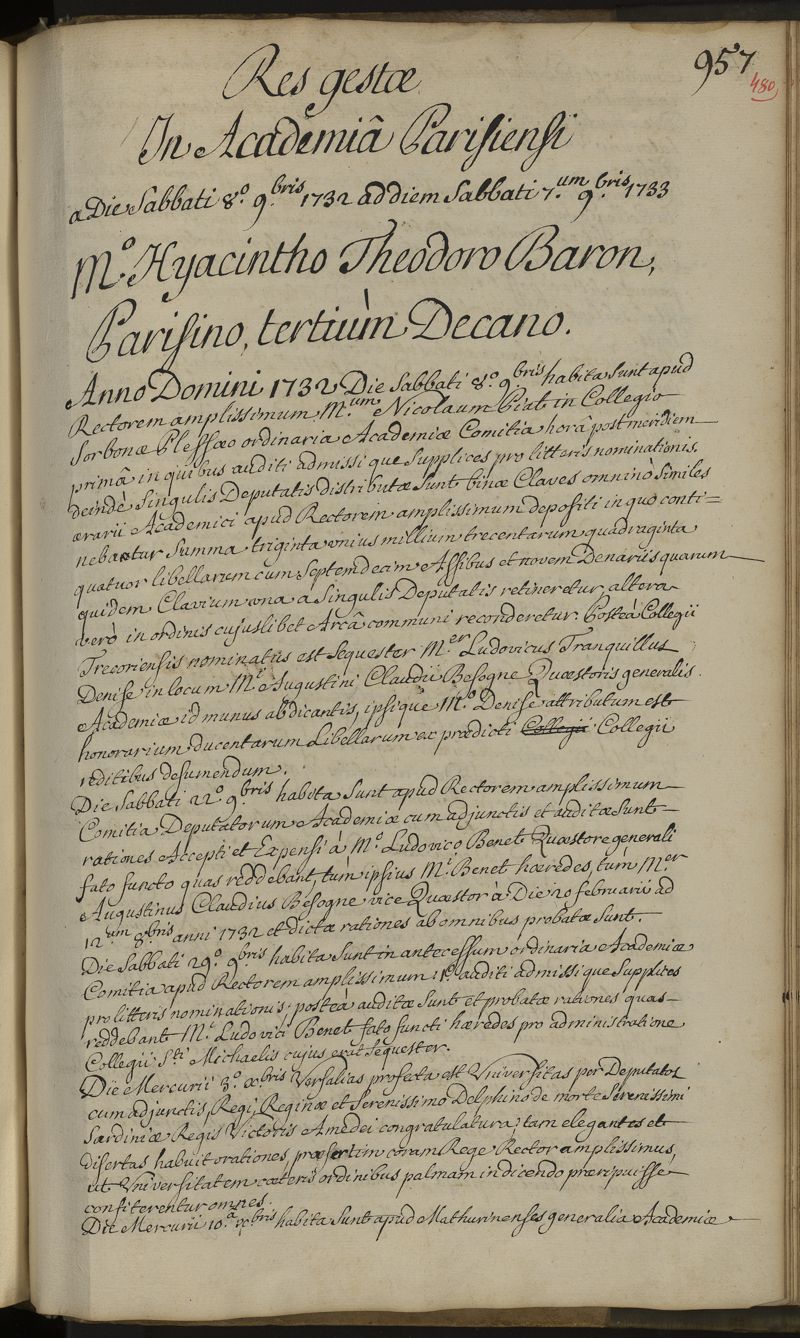 957
480
Res gestæ
In Academiâ Parisiensi
a Die Sabbati 8.º 9.bris 1732 ad diem Sabbati 7.um 9.bris 1733
M.º Hyacintho Theodoro Baron,
Parisino, tertiùm Decano.
Anno Domini 1732 Die Sabbati 8.º 9.bris habita sunt apud
Rectorem amplissimum M.um Nicolaum Piat in Collegio
Sorbonæ Plessæo ordinaria Academiæ Comitia horâ postmeridiem
primâ in quibus auditi admissique Supplices pro litteris nominationis,
deindè Singulis Deputatis distributæ sunt binæ Claves omninò Similes
ærarii Academici apud Rectorem amplissimum depositi in quo conti=
nebantur Summa triginta unius millium trecentarum quadraginta
quatuor libellarum cum Septemdecim Assibus et novem Denariis quarum
quidem Clavium una a Singulis Deputatis retineretur, altera
verò in ordinis cujuslibet Arcâ communi reconderetur. Posteà Collegii
Trecoriensis nominatus est Sequester M.er Ludovicus Tranquillus
Denise in locum M.i Augustini Claudii Besogne Quæstoris generalis
Academiæ id munus abdicantis, ipsique M.º Denise attributum est
honorarium ducentarum Libellarum ex prædicti Collegii Collegii
reditibus desumendum.
Die Sabbati 22.º 9.bris habita sunt apud Rectorem amplissimum
Comitia Deputatorum Academiæ cum adjunctis et auditæ sunt
rationes Accepti et Expensi à M.º Ludovico Benet Quæstore generali
fato functo quas reddebant, tùm ipsius M.i Benet hæredes, tum M.er
Augustinus Claudius Besogne vice Quæstor à Die 20 februarii ad
12.um 8.bris anni 1732 et dictæ rationes ab omnibus probatæ sunt.
Die Sabbati 29.º 9.bris habita sunt in antecessum ordinaria Academiæ
Comitia apud Rectorem amplissimum 1.º auditi admissique Supplices
pro litteris nominationis; posteà auditæ sunt et probatæ rationes quas
reddebant M.i Ludovici Benet fato functi hæredes pro administratione
Collegii S.ti Michaelis cujus erat Sequester.
Die Mercurii 3.º xbris Versalias profecta est Universitas per Deputatos
cum adjunctis, Regi, Reginæ et Serenissimo Delphino de morte Serenissimi
Sardiniæ Regis Victoris Amedei congratulatura; tam elegantes et
disertas habuit orationes, præsertim coram Rege Rector amplissimus,
ut Universitatem cæteris ordinibus palmam in dicendo præripuisse
confiterentur omnes.
Die Mercurii 10.â xbris habita sunt apud Mathurinenses generalia Academiæ